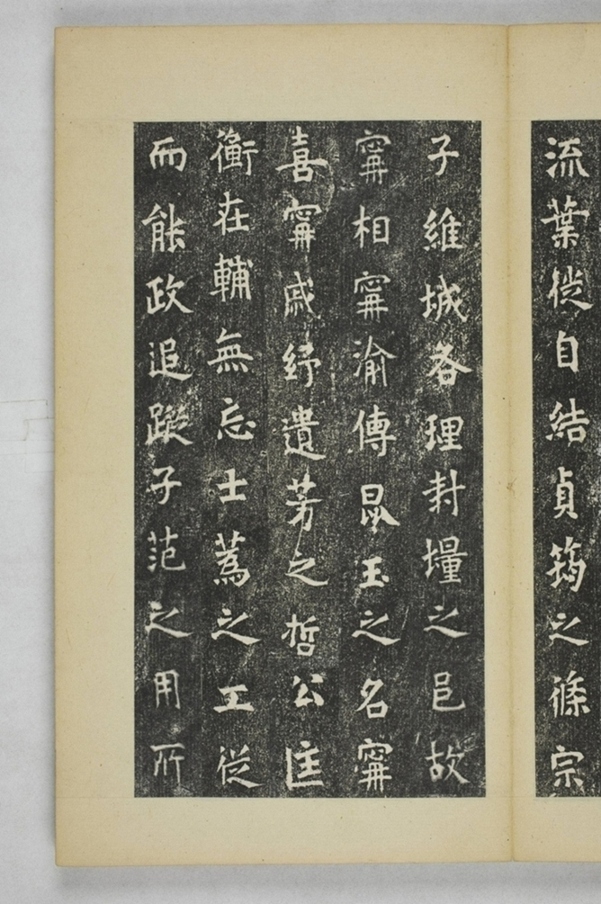 流葉從自結貞筠之條宗
子維城各理封壃之邑故
寗相寗渝傳昆玉之名寗
喜寗戚紓遺芳之哲公匡
衡在輔無忘士蒍之工從
而能政追蹤子范之用所